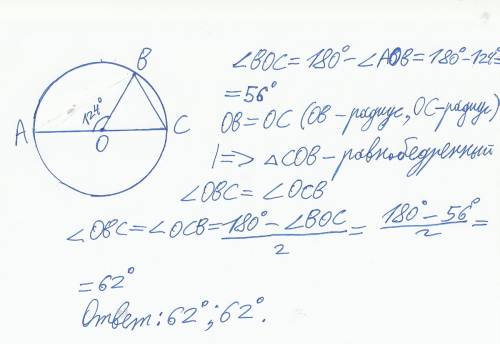 ∠BOC = 180° - ∠AOB = 180° - 124° =
= 56°
OB = OC (OB - радиус, OC - радиус)
|=> △COB - равнобедренный
∠OBC = ∠OCB
∠OBC = ∠OCB = (180° - ∠BOC)/2 = (180° - 56°)/2 =
= 62°
Ответ: 62°; 62°.
A
B
C
O
124°